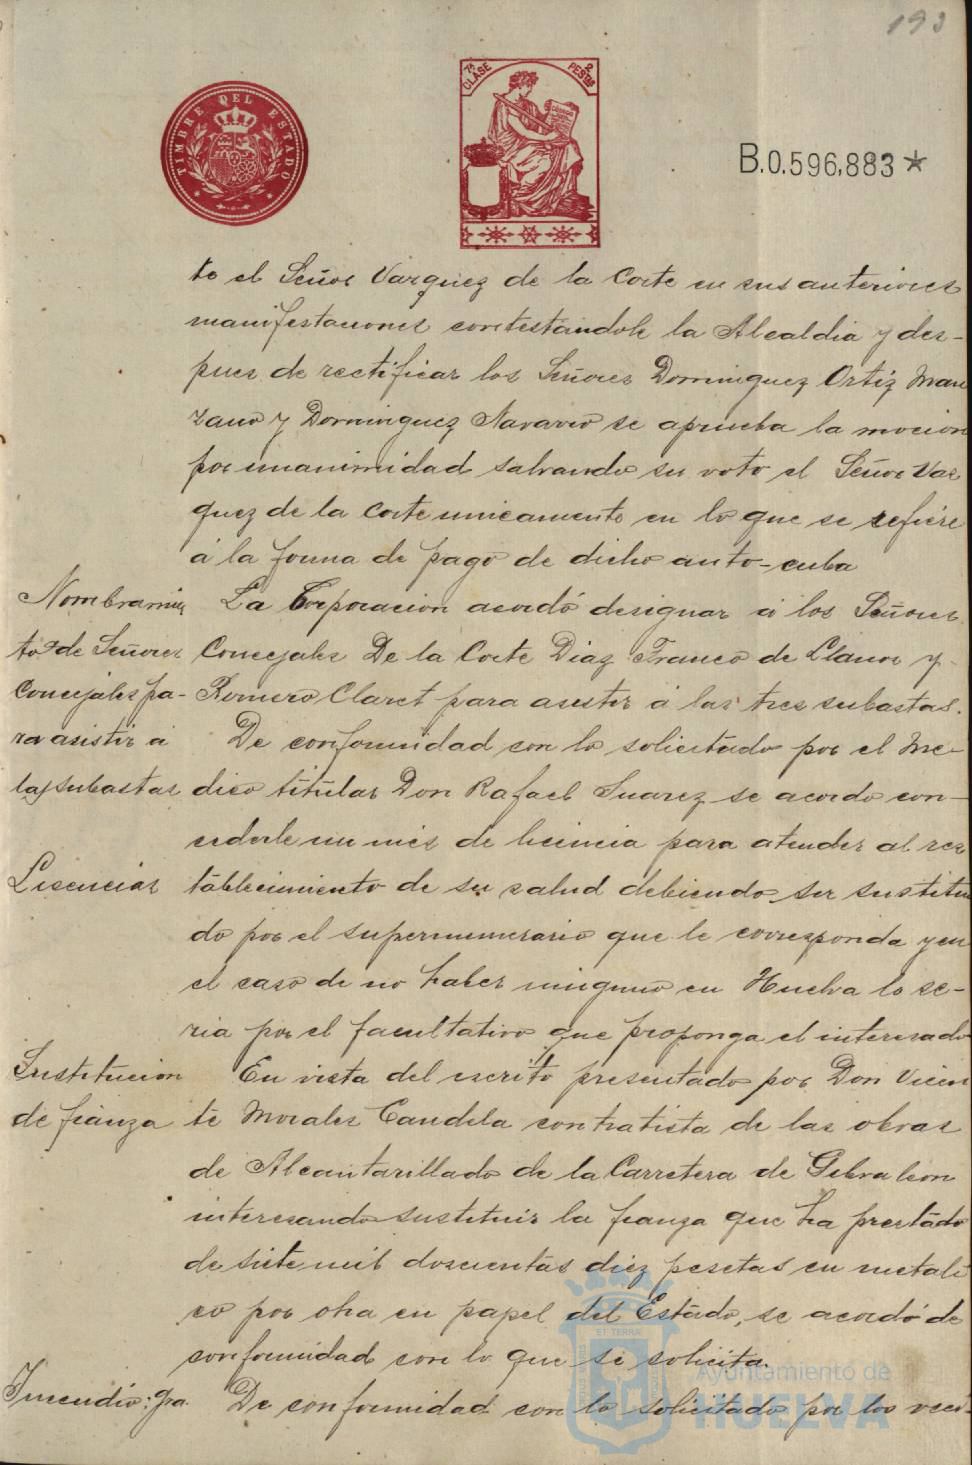 193
TIMBRE DEL ESTADO
7ª CLASE
2 PESTAS
B.0.596,883 *
to el Señor Vazquez de la Corte en sus anteriores
manifestaciones contestandole la Alcaldia y des-
pues de rectificar los Señores Dominguez Ortiz Man
zano y Dominguez Navarro se aprueba la mocion
por unanimidad salvando su voto el Señor Vaz
quez de la Corte unicamente en lo que se refiere
á la forma de pago de dicho auto-cuba
Nombramien
to de Señores
Concejales pa-
ra asistir á
las subastas
La Corporacion acordó designar á los Señores
Concejales De la Corte Diaz Franco de Llanos y
Romero Claret para asestir á las tres subastas.
De conformidad con lo solicitado por el Me-
dico titular Don Rafael Suarez se acordo con-
cederle un mes de licencia para atender al res
Lisencias
tablecimiento de su salud debiendo ser sustitui
do por el supernumerario que le corresponda y en
el caso de no haber ninguno en Huelva lo se-
ria por el facultativo que proponga el interesado
Sustitucion
de fianza
En vista del escrito presentado por Don Vicen
te Morales Candela contratista de las obras
de Alcantarillado de la Carretera de Gibraleon
interesando sustituir la fianza que ha prestado
de siete mil doscientas diez pesetas en metali
co por otra en papel del Estado, se acordó de
conformidad con lo que se solicita.
Incendio: gra
De conformidad con lo solicitado por los veci-
ET TERRA
Ayuntamiento de
HUELVA